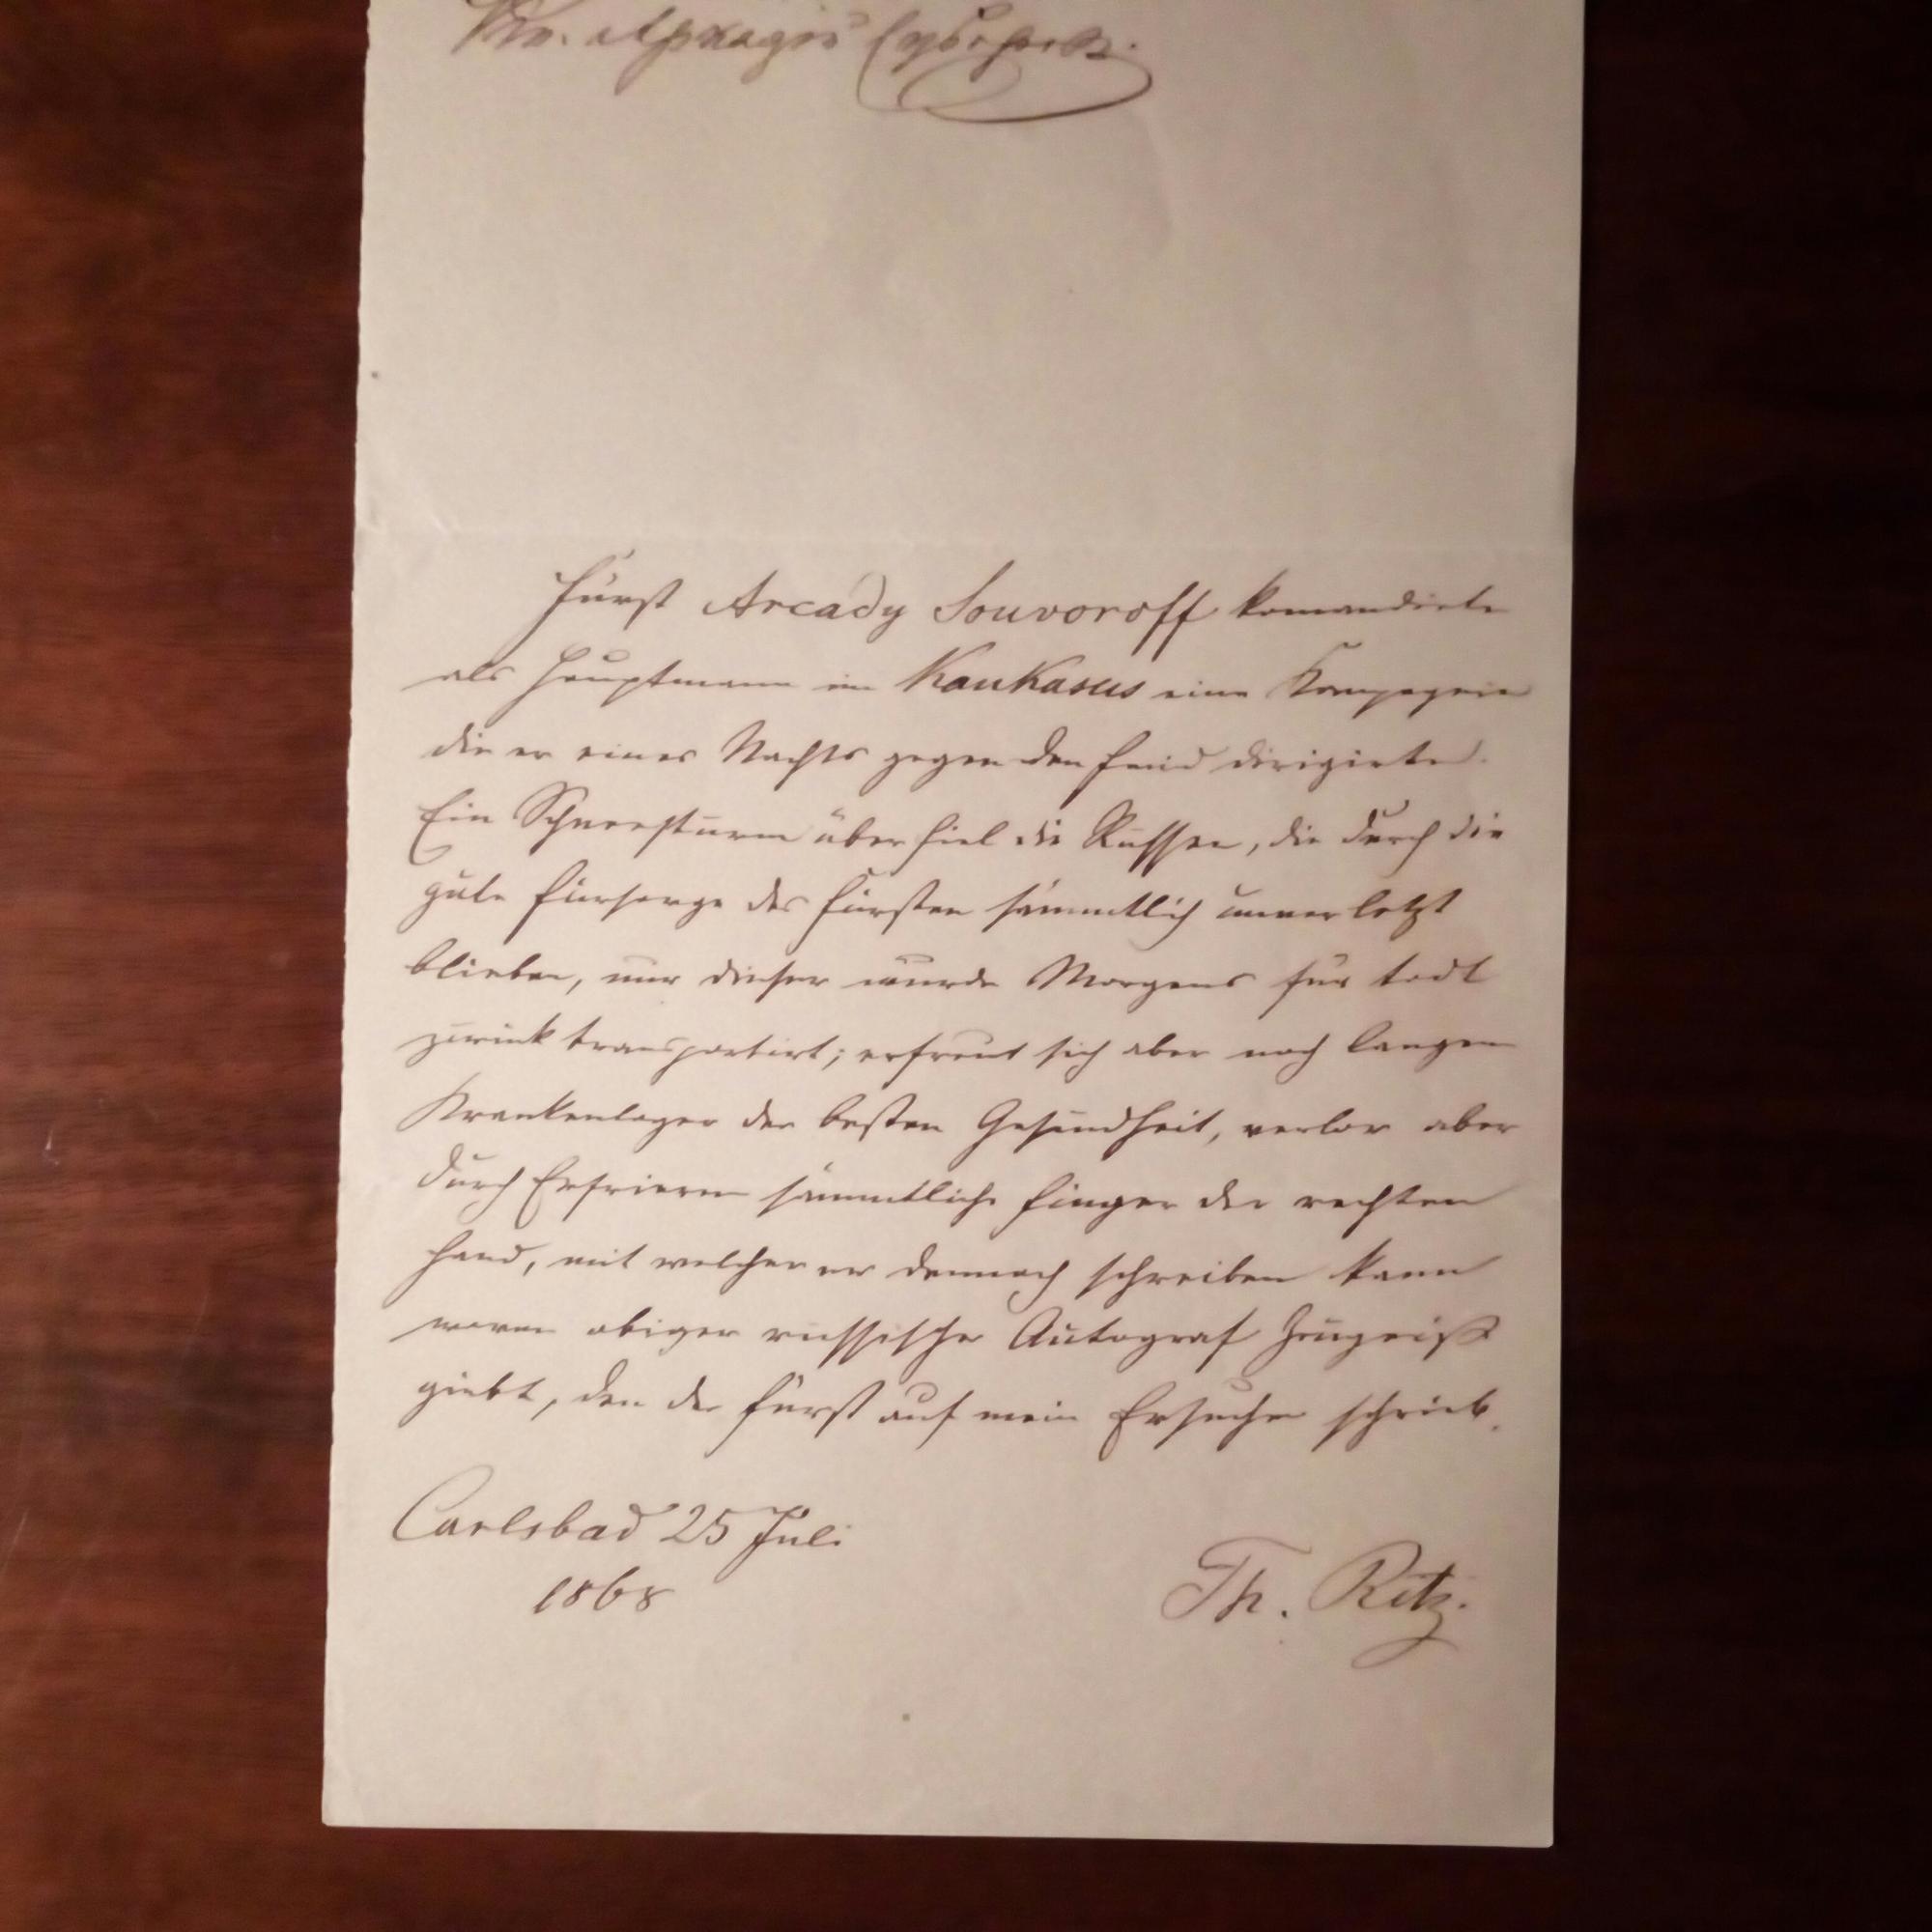 Кн. Аркадій Суворовъ.
Fürst Arcady Souvoroff komandirte
als Hauptmann im Kaukasus eine Kompagnie
die er eines Nachts gegen den Feind dirigirte.
Ein Schneesturm überfiel die Russen, die durch die
gute Fürsorge des Fürsten sämmtlich unverletzt
blieben, nur dieser wurde Morgens für todt
zurück transportirt; erfreut sich aber nach langem
Krankenlager der besten Gesundheit, verlor aber
durch Erfrieren sämmtliche Finger der rechten
Hand, mit welcher er dennoch schreiben kann
wovon obiger russische Autograf Zeugniß
giebt, den der Fürst auf mein Ersuchen schrieb.
Carlsbad 25 Juli
1868
Th. Ritz.